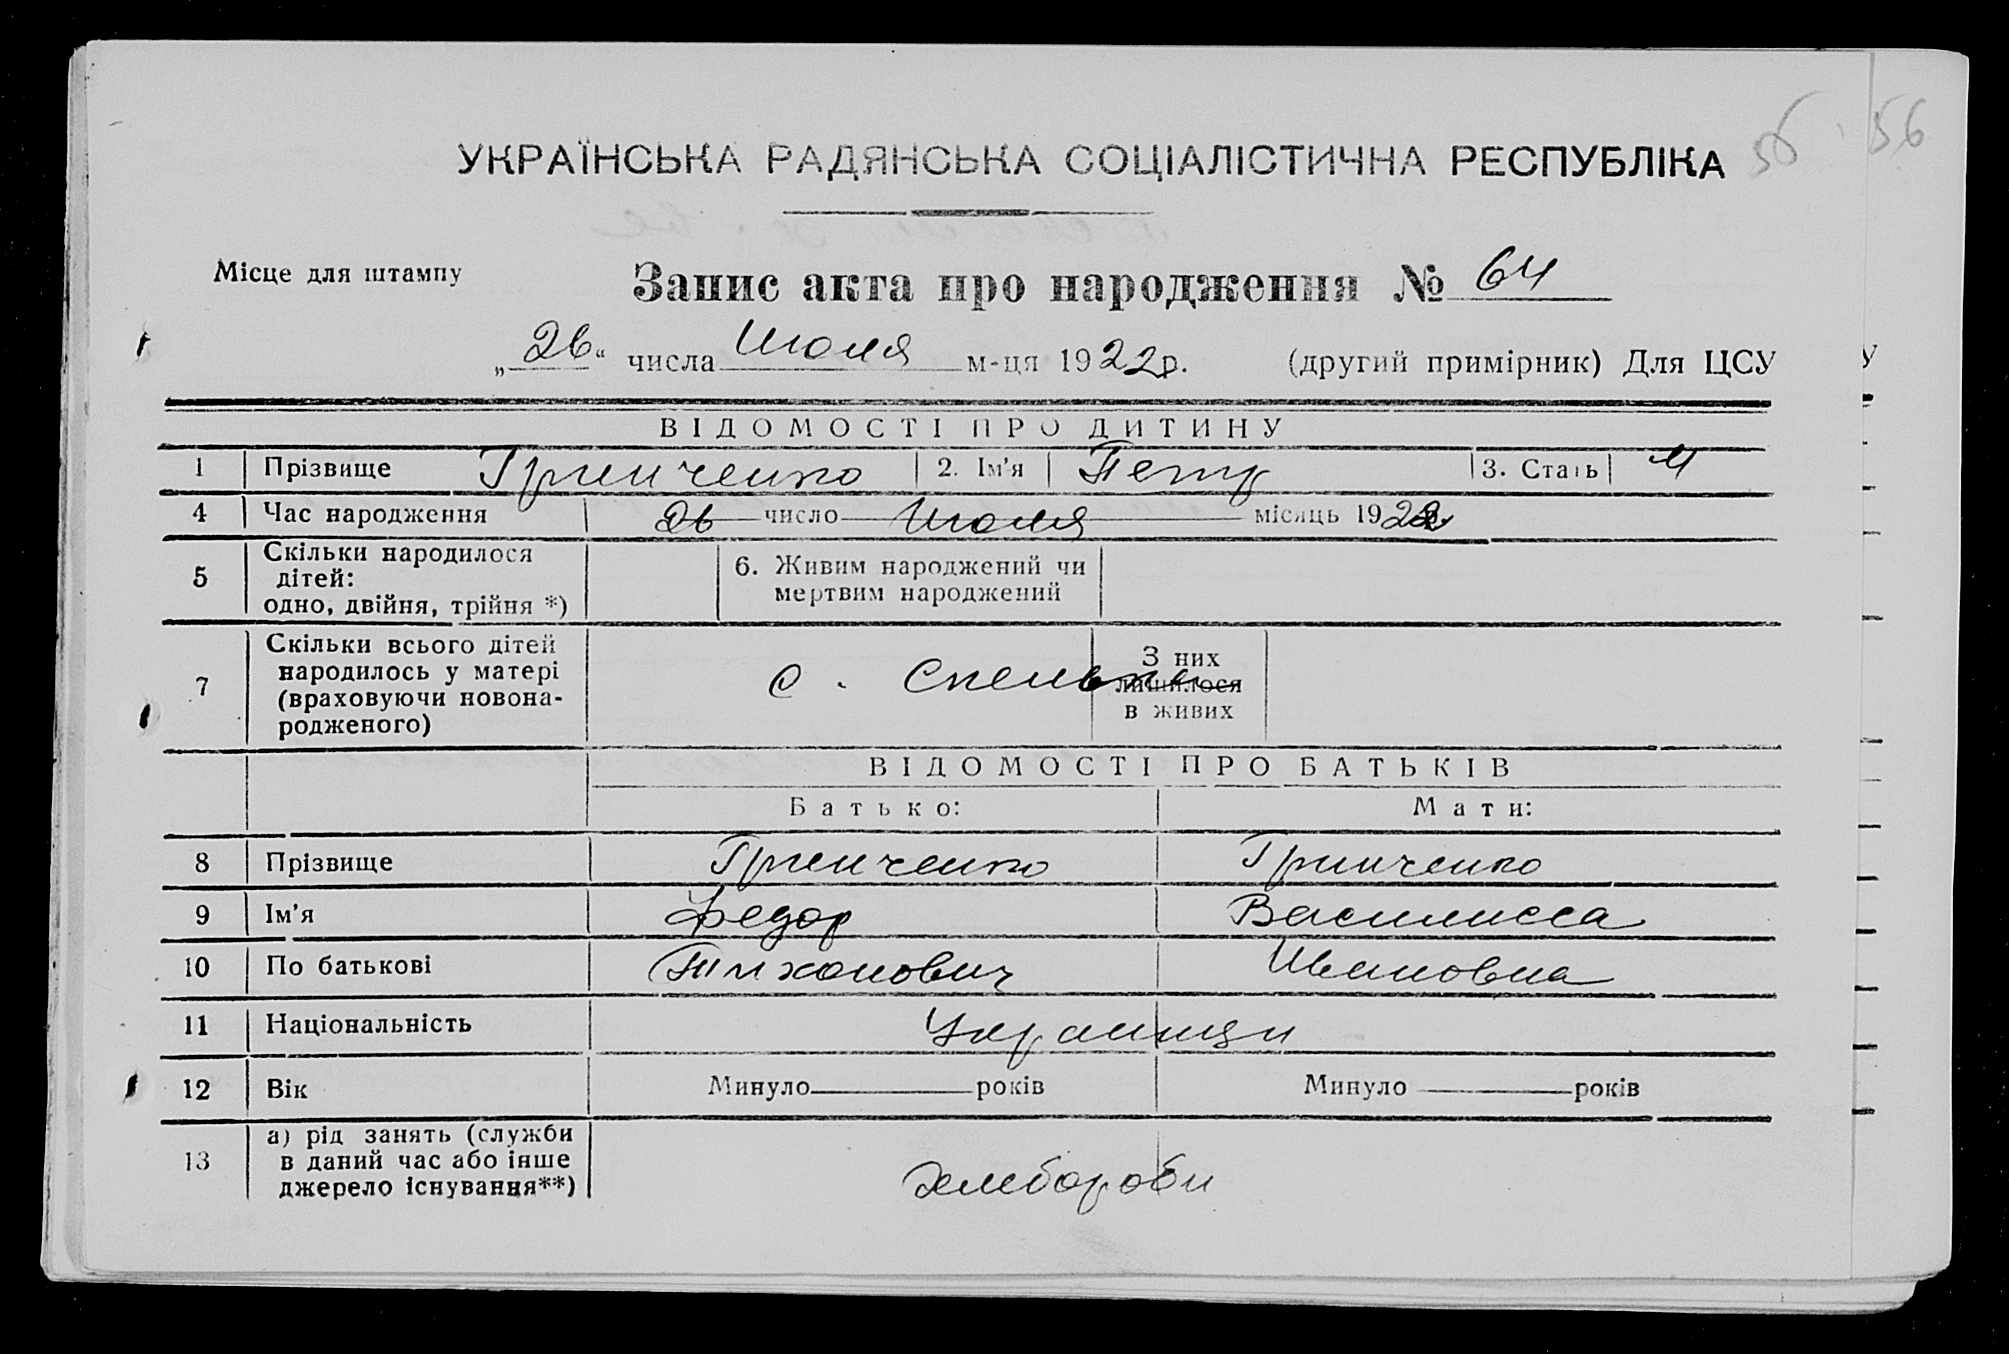 56 56
УКРАЇНСЬКА РАДЯНСЬКА СОЦІАЛІСТИЧНА РЕСПУБЛІКА
Місце для штампу
Запис акта про народження № 64
„26“ числа Июля м-ця 1922р. (другий примірник) Для ЦСУ
ВІДОМОСТІ ПРО ДИТИНУ
1 Прізвище Гринченко 2. Ім'я Петр 3. Стать М
4 Час народження 26 число Июля місяць 1922
5 Скільки народилося дітей: одно, двійня, трійня *) 6. Живим народжений чи мертвим народжений
7 Скільки всього дітей народилось у матері (враховуючи новонародженого) с. З них лишилося в живих
ВІДОМОСТІ ПРО БАТЬКІВ
Батько: Мати:
8 Прізвище Гринченко Гринченко
9 Ім'я Федор Василисса
10 По батькові Тихонович Ивановна
11 Національність Украинци
12 Вік Минуло років Минуло років
13 а) рід занять (служби в даний час або інше джерело існування**) Хлебороби